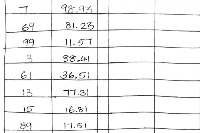 7 98.93
64 81.23
99 11.57
3 88.41
61 36.51
13 77.31
15 16.81
89 17.51